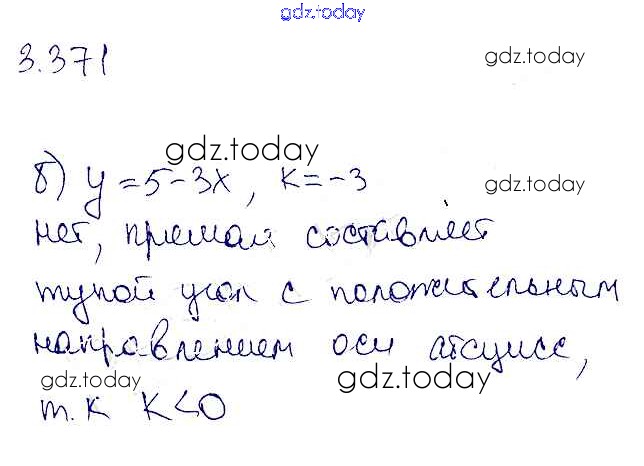 gdz.today
3.371
gdz.today
gdz.today
б) y = 5 - 3x, k = -3
gdz.today
нет, прямая составляет
тупой угол с положительным
направлением оси абсцисс,
gdz.today
gdz.today
т.к k < 0